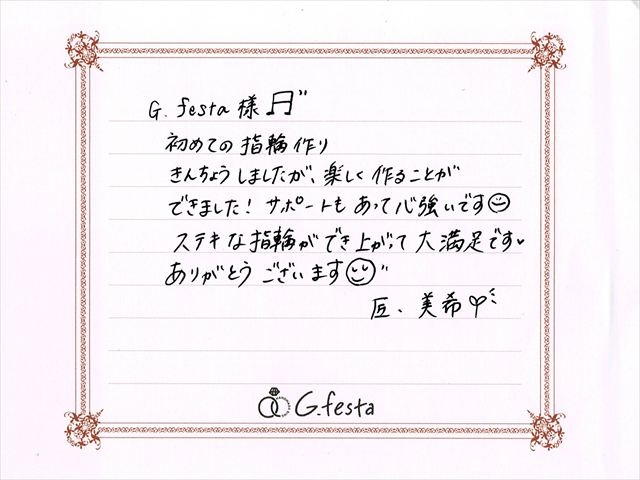 G. festa様♬"
初めての指輪作り
きんちょうしましたが、楽しく作ることが
できました！サポートもあって心強いです☺
ステキな指輪ができ上がって大満足です♥
ありがとうございます☺"
匠、美希
G.festa